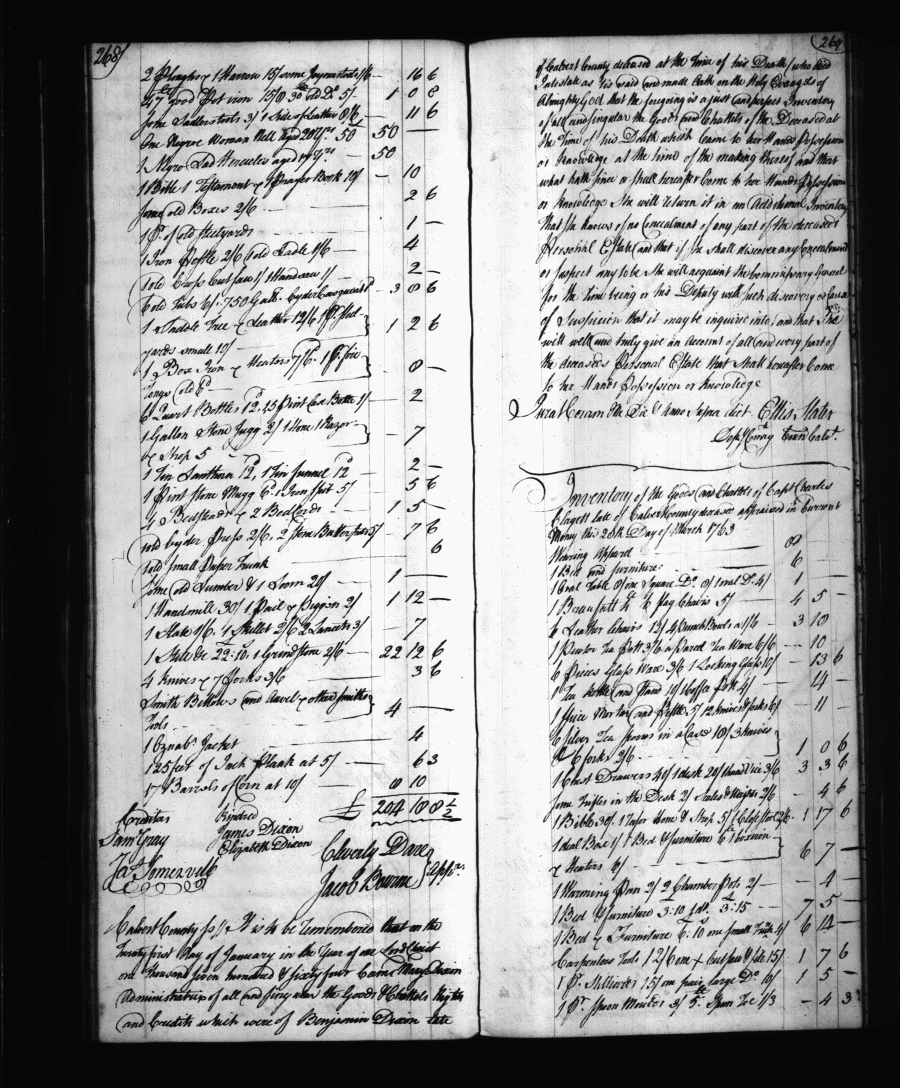 268
2 Ploughs & 1 Harrow 15/ some Joyners tools 1/6 — 16 6
47 good Pot iron 15/8 30 old Do. 5/ 1 0 8
some Sadlers tools 3/ 1 Side of leather 8/6 — 11 6
One Negroe Woman Nell Aged 20 Yrs. 50 50 —
1 Negro Lad Hercules aged Yrs — 50
1 Bible 1 Testament & 1 Prayer Book 10/ — 10
some old Boxes 2/6 — 2 6
1 Pr. of old Steelyards — 1 —
1 Iron Pestle 2/6 1 old Ladle 1/6 — 4
1 old Cross Cut Saw 1/ 1 Handsaw 1/ — 2 —
6 old Tubs 6/. 750 Galls. Cyder Casques — 3 8 6
1 Saddle Tree & Leather 12/6. 1 Pr. Steel
yards small 10/ — 1 2 6
1 Box Iron & Heaters 7/6. 1 Pr. fire
Tongs (old) — 8 —
6 Quart Bottles 12. 45 Pint Case Bottles 1/ — 2
1 Gallon Stone Jugg 2/ 1 Hone 1 Razor
& Strop 5 — 7
1 Tin Lanthorn 12d, 1 Tin funnel 12d — 2 —
1 Pint Stone Mugg 6d. 1 Iron Spit 5/ — 5 6
4 Bedsteads & 2 Bedcords — 1 5 —
1 old Cyder Press 2/6. 2 Stone Butter pots 5/ — 7 6
1 old small Paper Trunk 6
some old Lumber & 1 Loom 20/ — 1 —
1 Handmill 30/ 1 Pail & Piggon 2/ 1 12 —
1 Slate 1/6. 1 Skillet 2/6 2 Lancets 3/ — 7
1 Still &c 22:10. 1 Grindstone 2/6 — 22 12 6
4 Knives & 7 forks 3/6 3 6
Smith Bellows and Anvil & other Smiths
Tools — 4 —
1 Oznabs. Jacket — 4
125 feet of Inch Plank at 5/ — 6 3
17 Barrels of Corn at 10/ — 8 10
£ 204 18 8 1/2
Creditors Kindred
Saml. Gray James Dixon
Elizabeth Dixon Cleverly Dare
Jas. Somervell Jacob Bourne Apprs.
Calvert County ss// It is to be Remembered that on the
Twenty first Day of January in the Year of our Lord Christ
one thousand seven hundred & sixty four Came Mary Dixon
Administratrix of all and singular the Goods & Chattels Rights
and Credits which were of Benjamin Dixon late
269
of Calvert County deceased at the Time of his Death (who died
Intestate as tis said and made Oath on the Holy Evangels of
Almighty God that the foregoing is a just and perfect Inventory
of all and singular the Goods and Chattels of the Deceased at
the Time of his Death which Came to her Hands Possession
or Knowledge at the time of the making thereof and that
what hath since or shall hereafter Come to her Hands Possession
or Knowledge she will return it in an Additional Inventory
that she knows of no Concealment of any part of the deceased
Personal Estate and that if she shall discover any Concealment
or suspect any to be she will acquaint the Commissary General
for the time being or his Deputy with such discovery or Cause
of Suspicion that it may be inquired into, and that She
will well and truly give an Account of all and every part of
the deceaseds Personal Estate that shall hereafter Come
to her Hands Possession or Knowledge
Jurat Coram Me Die & Anno Supra dict. Ellis Slater
Depy. Comry. Coun Calvt.
Inventory of the Goods and Chattels of Capt Charles
Clagett late of Calvert County deceased appraised in Current
Money this 28th Day of March 1763
Wearing Apparel — 8
1 Bed and furniture — 6 —
1 Oval Table 8/ one Square Do. 8/ 1 oval Do. 4/ 1 —
1 Beaufatt 6 Flag Chairs 5/ 4 5 —
6 Leather Chairs 15/ 4 Punch Bowls a 1/6 — 3 10
1 Pewter Tea Pott 3/6 a parcel Tea Ware 6/6 — 10
6 Pieces Glass Ware 3/6 1 Looking Glass 10/ — 13 6
1 Tea Kettle and Stand 10/ 1 Coffee Pott 4/ — 14 —
1 Spice Mortar and Pestle 5/ 12 Knives & forks 6/ — 11 —
6 silver Tea Spoons in a Case 18/ 3 Knives
& 6 forks 2/6 — 1 0 6
1 Chest Drawers 40/ 1 desk 20/ 1 hand Vice 3/6 3 3 6
some Trifles in the Desk 2/ Scales & Weights 2/6 — 4 6
1 Bible 30/. 1 Razor hone & Strop 5/ 1 Close stool 2/6. 1 17 6
1 deal Box 1/ 1 Bed & furniture 6 1 box iron
& Heaters 6/ 6 7 —
1 Warming Pan 2/ 2 Chamber Pots 2/ — 4 —
1 Bed & furniture 3:10 1 do. 3:15 — 7 5 —
1 Bed & Furniture 6:10 one Small Trunk 4/ 6 14 —
Carpenters Tools 12/6 one + Cut Saw & file 15/ 1 7 6
1 Pr. Stilliards 15/ one pair large Do. 10/ 1 5 —
1 Pr. Spoon Moulds 3/ 5 Spun Toe 1/3 — 4 3